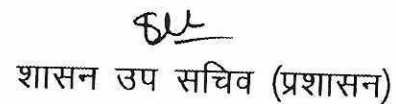 शासन उप सचिव (प्रशासन)